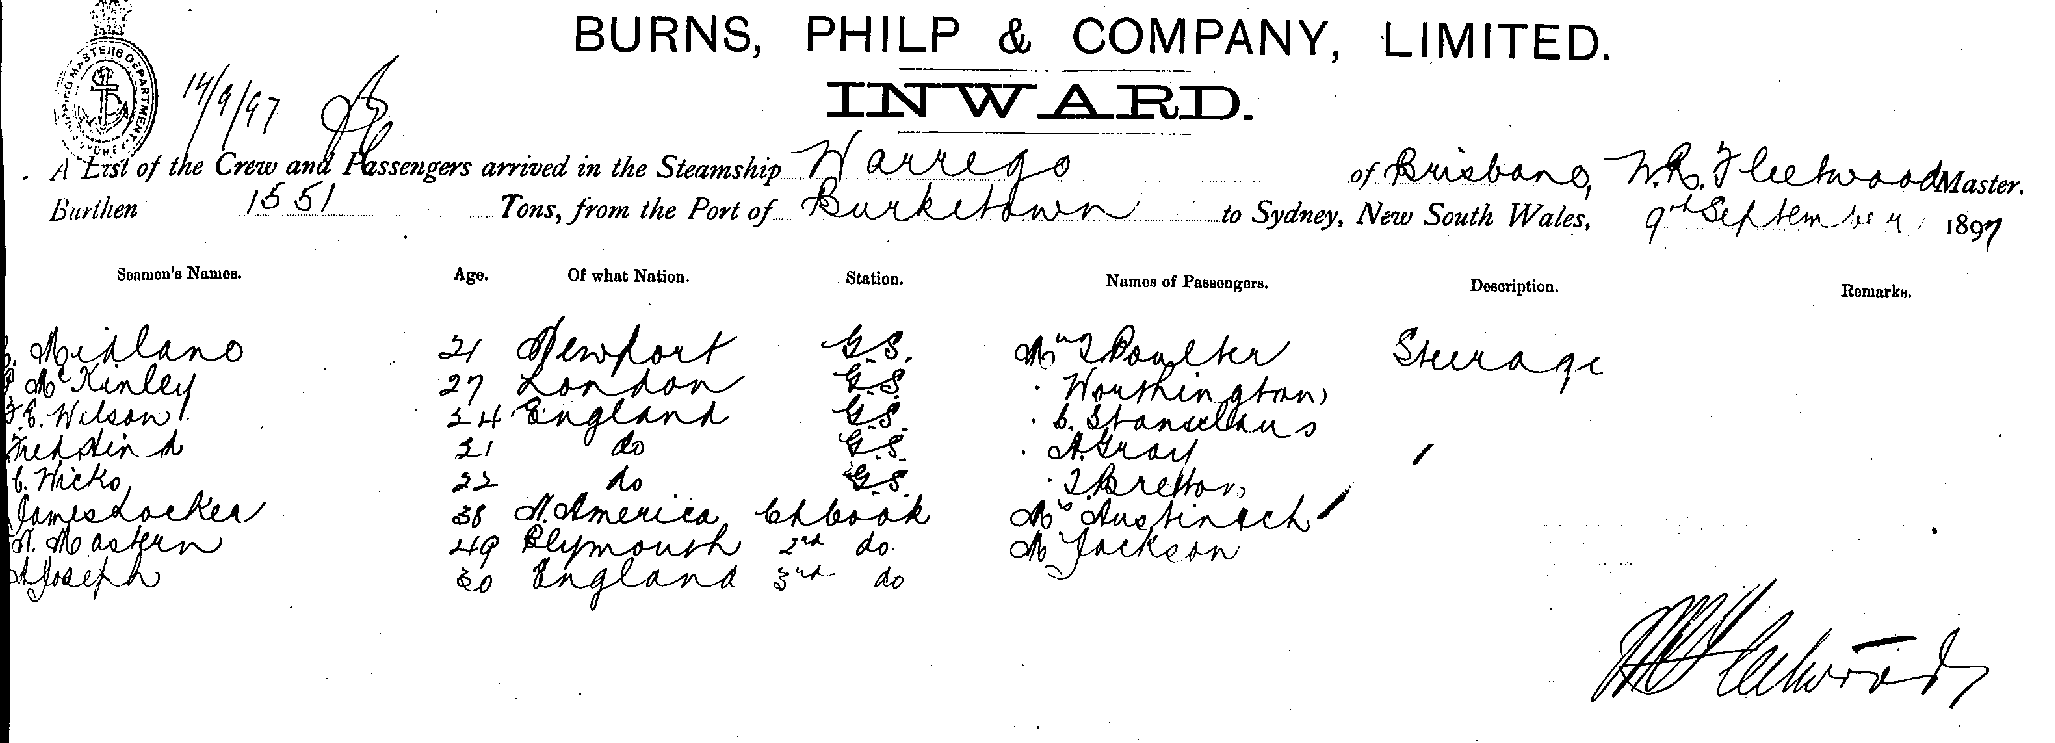 BURNS, PHILP & COMPANY, LIMITED.
INWARD.
14/9/97
A List of the Crew and Passengers arrived in the Steamship Warrego of Brisbane, W.R. Fleetwood Master.
Burthen 1551 Tons, from the Port of Burketown to Sydney, New South Wales, 9th September 1897
Seamen's Names. Age. Of what Nation. Station. Names of Passengers. Description. Remarks.
Midland 21 Newport G.S. Mr T Poulter Steerage
McKinley 27 London G.S. " Worthington
F.E. Wilson 24 England G.S. " C. Stanselaus
Fred Hind 21 do G.S. " A. Gray
C. Hicks 22 do G.S. " T. Bretton
James Locker 38 N. America Ch Cook Mrs Austin & ch
Mastern 49 Plymouth 2nd do Mr Jackson
A Joseph 30 England 3rd do
WRFleetwood